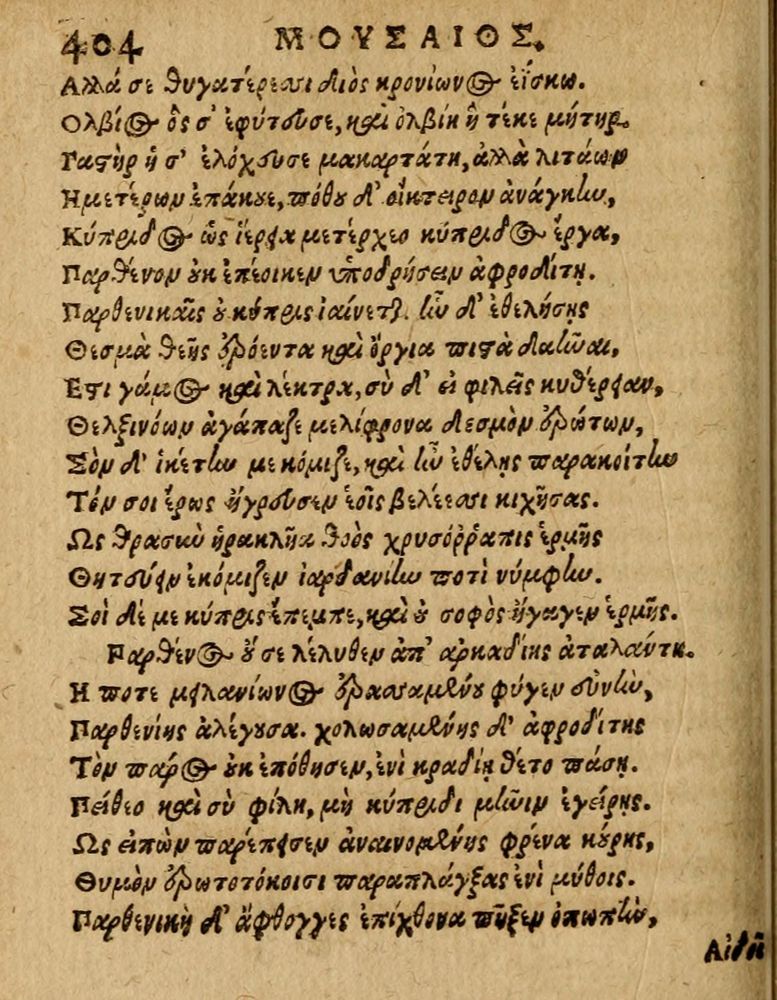 404 ΜΟΥΣΑΙΟΣ.
Αλλά σε θυγατέρεσσι Διὸς κρονίωνος ἐΐσκω.
Ολβίος ὃς σ' ἐφύτευσε, καὶ ὀλβίη ἣ τέκε μήτηρ.
Γαστὴρ ἥ σ' ἐλόχευσε μακαρτάτη, ἀλλὰ λιτάων
Ημετέρων ἐπάκουε, πόθου δ' οἴκτειρον ἀνάγκην,
Κύπριδος ὡς ἱέρεια μετέρχεο κύπριδος ἔργα,
Παρθένον οὐκ ἐπέοικεν ὑποδρήσειν ἀφροδίτῃ.
Παρθενικαῖς οὐ κύπρις ἰαίνεται. ἢν δ' ἐθελήσῃς
Θεσμὰ θεῆς ἐρόεντα καὶ ὄργια πιστὰ δαῶναι,
Εστι γάμος καὶ λέκτρα, σὺ δ' εἰ φιλεῖς κυθέρειαν,
Θελξινόων ἀγάπαζε μελίφρονα δεσμὸν ἐρώτων,
Σὸν δ' ἱκέτην με κόμιζε, καὶ ἢν ἐθέλῃς παρακοίτην
Τόν σοι ἔρως ἤγρευσεν ἑοῖς βελέεσσι κιχήσας.
Ως θρασὺν ἡρακλῆα θοὸς χρυσόῤῥαπις ἑρμῆς
Θητεύειν ἐκόμιζεν ἰαρδανίην ποτὶ νύμφην.
Σοὶ δέ με κύπρις ἔπεμπε, καὶ οὐ σοφὸς ἤγαγεν ἑρμῆς.
Παρθένος οὔ σε λέληθεν ἀπ' ἀρκαδίης ἀταλάντη.
Η ποτε μειλανίωνος ἐρασσαμένου φύγεν εὐνὴν,
Παρθενίης ἀλέγουσα. χολωσαμένης δ' ἀφροδίτης
Τὸν πάρος οὐκ ἐπόθησεν, ἐνὶ κραδίῃ θέτο πάσῃ.
Πείθεο καὶ σὺ φίλη, μὴ κύπριδι μῆνιν ἐγείρῃς.
Ως εἰπὼν παρέπεισεν ἀναινομένης φρένα κούρης,
Θυμὸν ἐρωτοτόκοισι παραπλάγξας ἐνὶ μύθοις.
Παρθενικὴ δ' ἄφθογγος ἐπὶ χθόνα πῆξεν ὀπωπὴν,
Αἰδοῖ